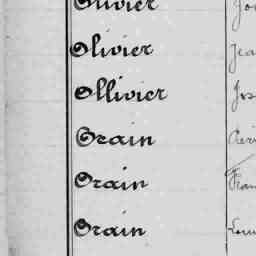 Olivier
Olivier Jea
Ollivier Jos
Orain Pier
Orain Fran
Orain Loui